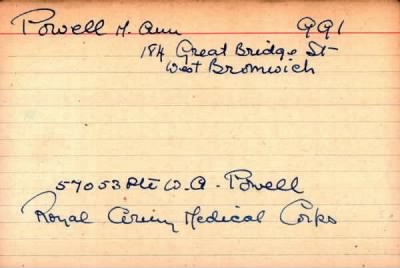 Powell M. Ann 991
184 Great Bridge St
West Bromwich
57053 Pte W. A. Powell
Royal Army Medical Corps